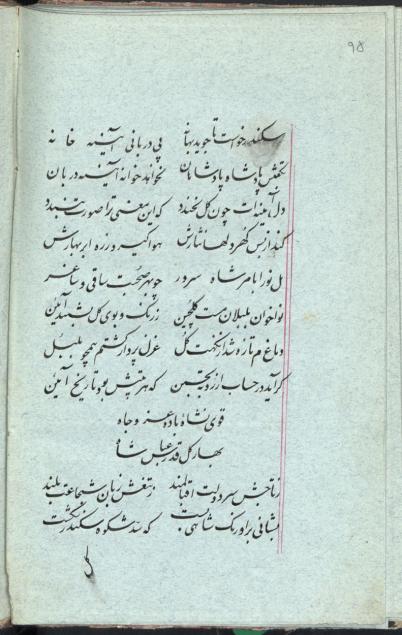 ۹۵
سکندر خواست تا جوید بهانه پی دربانی آیینه خانه
بگفتش پادشاه پادشاهان نخواهد خوانه آیینه دربان
دل آیینه‌ات چون گل نخندد که این معنی ترا صورت نبندد
کند از بس گهر و لعل نثارش هوا گیر و زره ابر بهارش
سرور چو بهر صحبت ساقی و ساغر
نواخوان بلبلان مست گلچین ز رنگ و بوی گل شد آیین
دماغم تازه شد از نکهت گل غزل پرداز گشتم همچو بلبل
گر آید در حساب از روی تحسین که هر بیتش بود تاریخ آیین
قوی نشاه باده عز و جاه
بهار گل قدر عباس شاه
ز تاجش سر دولت اقبالمند ز تیغش زبان شجاعت بلند
نشانی بر اورنگ شاهی که سد شکوه سکندر شکست